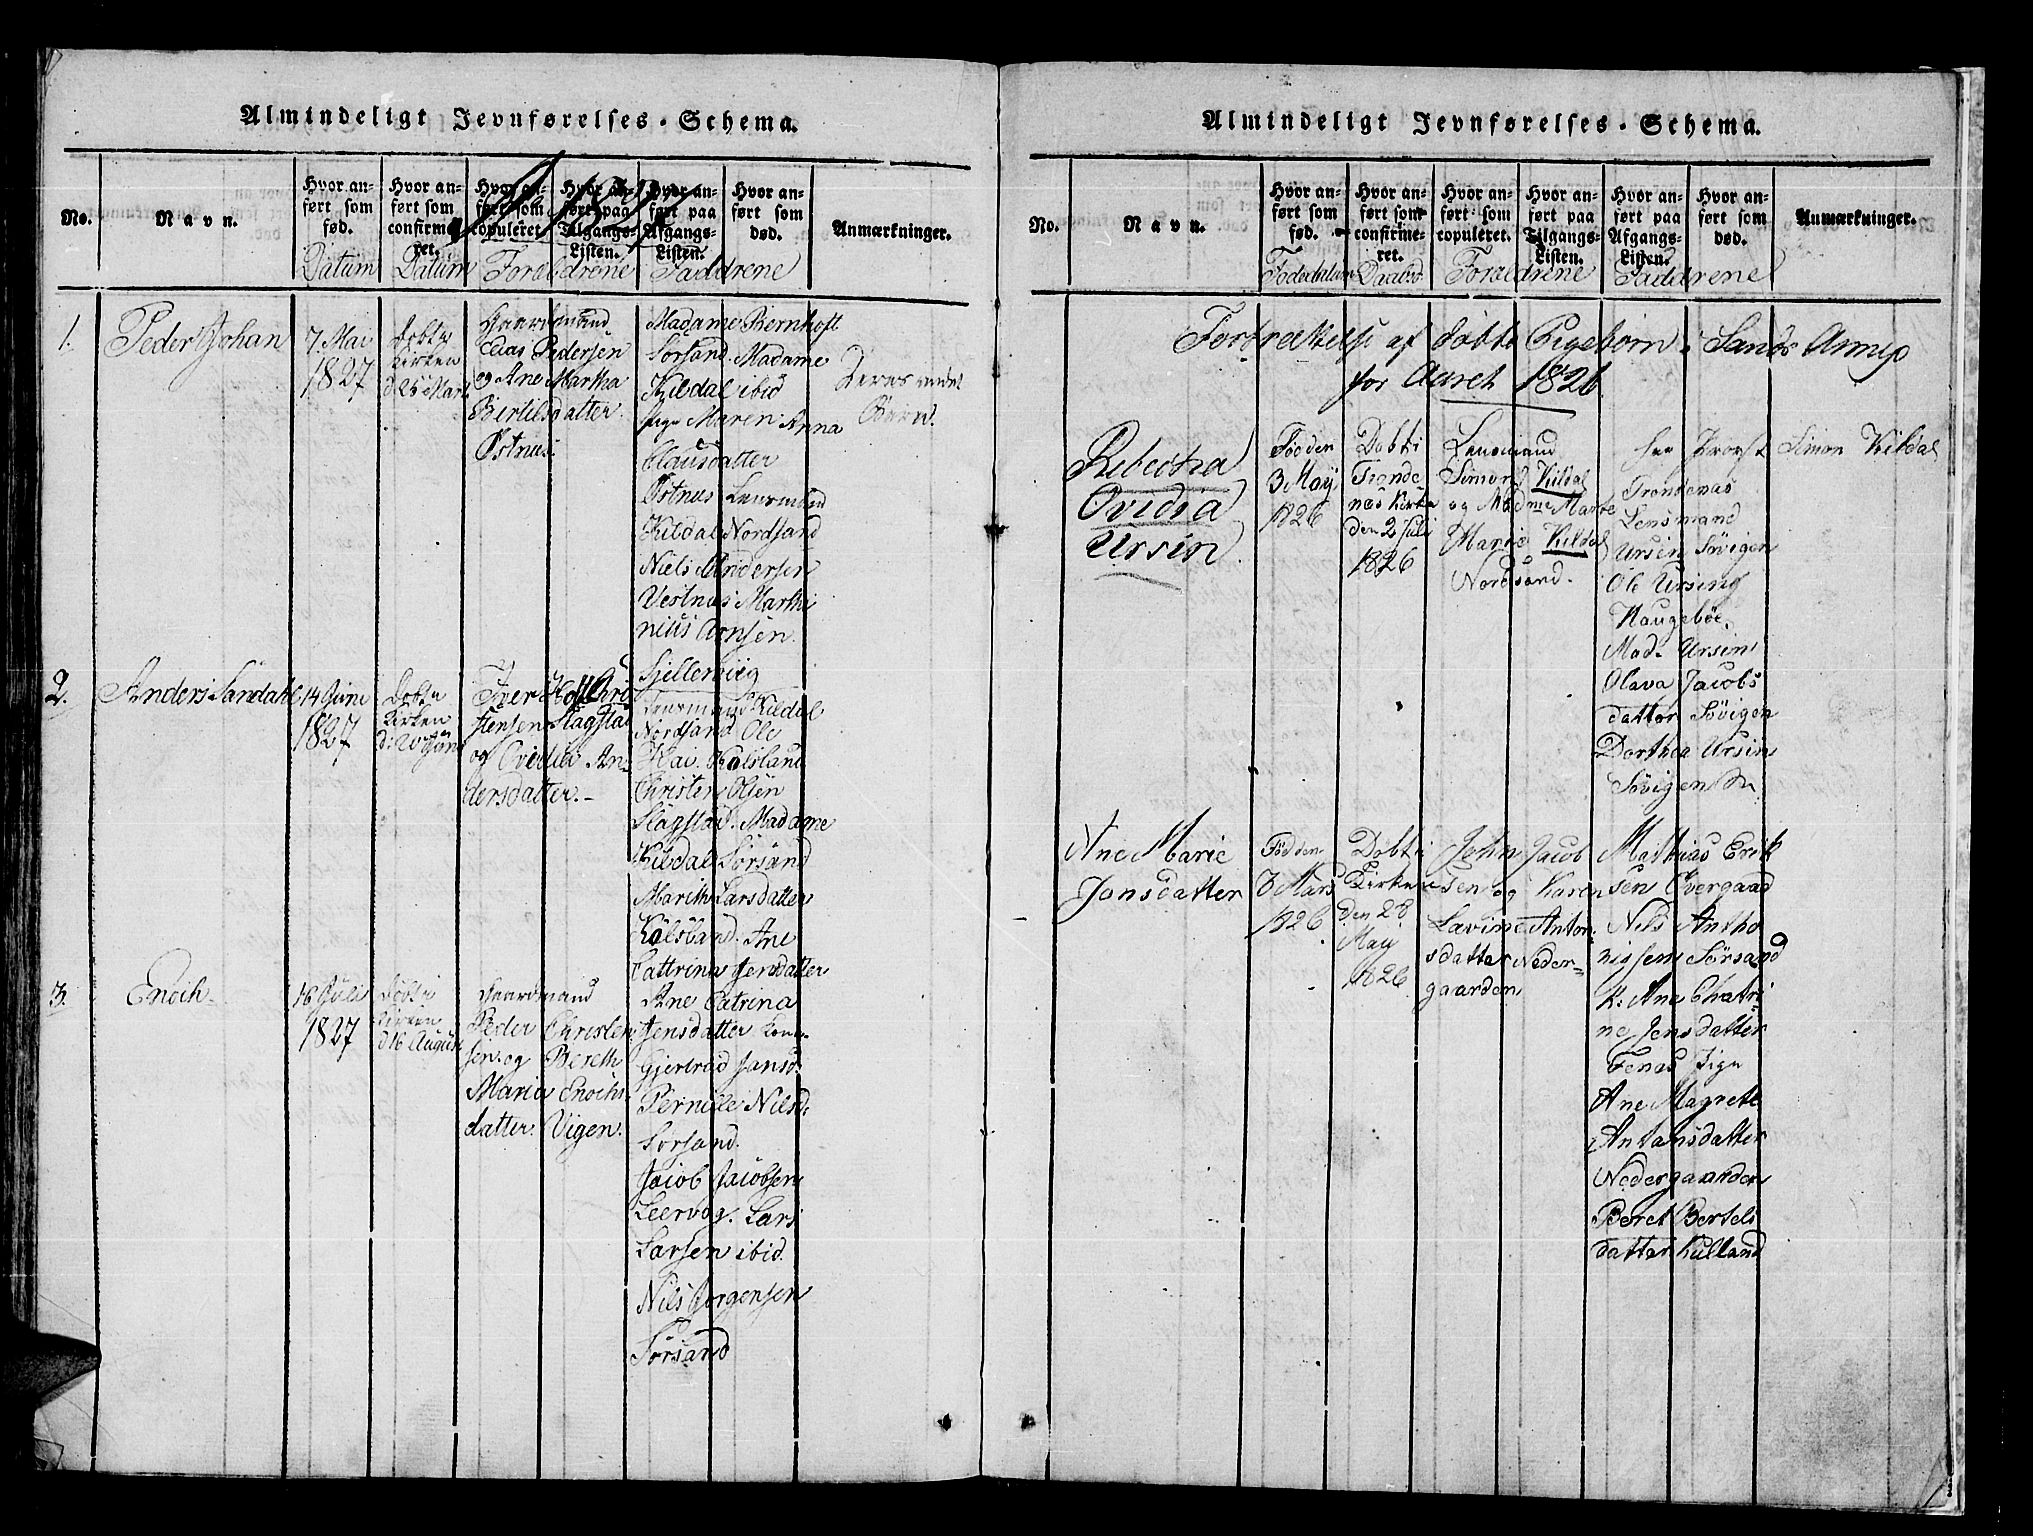 Almindeligt Jevnførelses-Schema.
No.
Navn.
Hvor anført som fød.
Hvor anført som confirmeret.
Hvor anført som copuleret.
Hvor anført paa Tilgangs-Listen.
Hvor anført paa Afgangs-Listen.
Hvor anført som død.
Anmærkninger.
Datum
Datum
Forældrene
Faddrene
1.
Peder Johan
7. Mai
1827
døbt i
Kirken
Gaardmand
Elias Pedersen
og Ane Martha
Bertilsdatter
Østnus.
Madame Bernhoft
Sørsand. Madame
Kildal ibid
pige Maren Anna
Clausdatter
Østnus Lensmand
Kildal Nordsand
Niels Andersen
Vestnus Marthi
nius Arnsen.
Deres
Barn.
2.
Anders Sandahl
14 Juni
1827
døbt i
Kirken
Iver Hoff Chri
stensen Slagstad
og Ovidia An-
dersdatter.-
Lensmand Kildal
Nordsand Ole
Kai. Kølsland
Christen Olsen
Slagstad. Madame
Kildal Sørsand
Marith Larsdatter
Kølsland. Ane
Cattrina Jensdatter
3.
Enoch
16 Juli
1827
døbt i
Kirken
d 16 August
Gaardmand
Peder Christen
sen og Bereth
Maria Enochs
datter. Vigen.
Ane Catrina
Jensdatter Kone
Gjertrud Jansd.
Pernille Nilsd.
Sørsand.
Jacob Jacobsen
Leervog. Lars
Larsen ibid.
Nils Jørgensen
Sørsand
Almindeligt Jevnførelses-Schema.
No.
Navn.
Hvor anført som fød.
Hvor anført som confirmeret.
Hvor anført som copuleret.
Hvor anført paa Tilgangs-Listen.
Hvor anført paa Afgangs-Listen.
Hvor anført som død.
Anmærkninger.
Fødedatum
Forældrene
Faddrene
af døbte Pigebørn i Sands Annex
for Aaret 1826
Rebecka
Ovidia
Ursin
Fød den
3 May
1826
Døbt i
Tronde
næs Kirke
den 2 Juli
1826
Lensmand
Simon Kildal
og Madme Marte
Maria Kildal
Nordsand.
Herr Provst Simon Kildal
Trondenæs
Lensmand
Ursin Søvigen
Ole Ursing
Haugebøe.
Mad. Ursin
Olava Jacobs
datter Søvigen
Dorthea Ursin
Søvigen
Ane Marie
Jonsdatter
Fød den
8 Mars
1826
Døbt i
Kirken
den 28
May
1826
John Jacob
sen og Karen
Lavine Anton
sdatter Neder-
gaarden
Mathias Erik
sen Overgaard
Nils Antho
nissen Sørsand
K. Ane Chatri
ne Jensdatter
Fenas Pige
Ane Magrete
Antonsdatter
Nedergaarden
Beret Bertels
datter Kulland